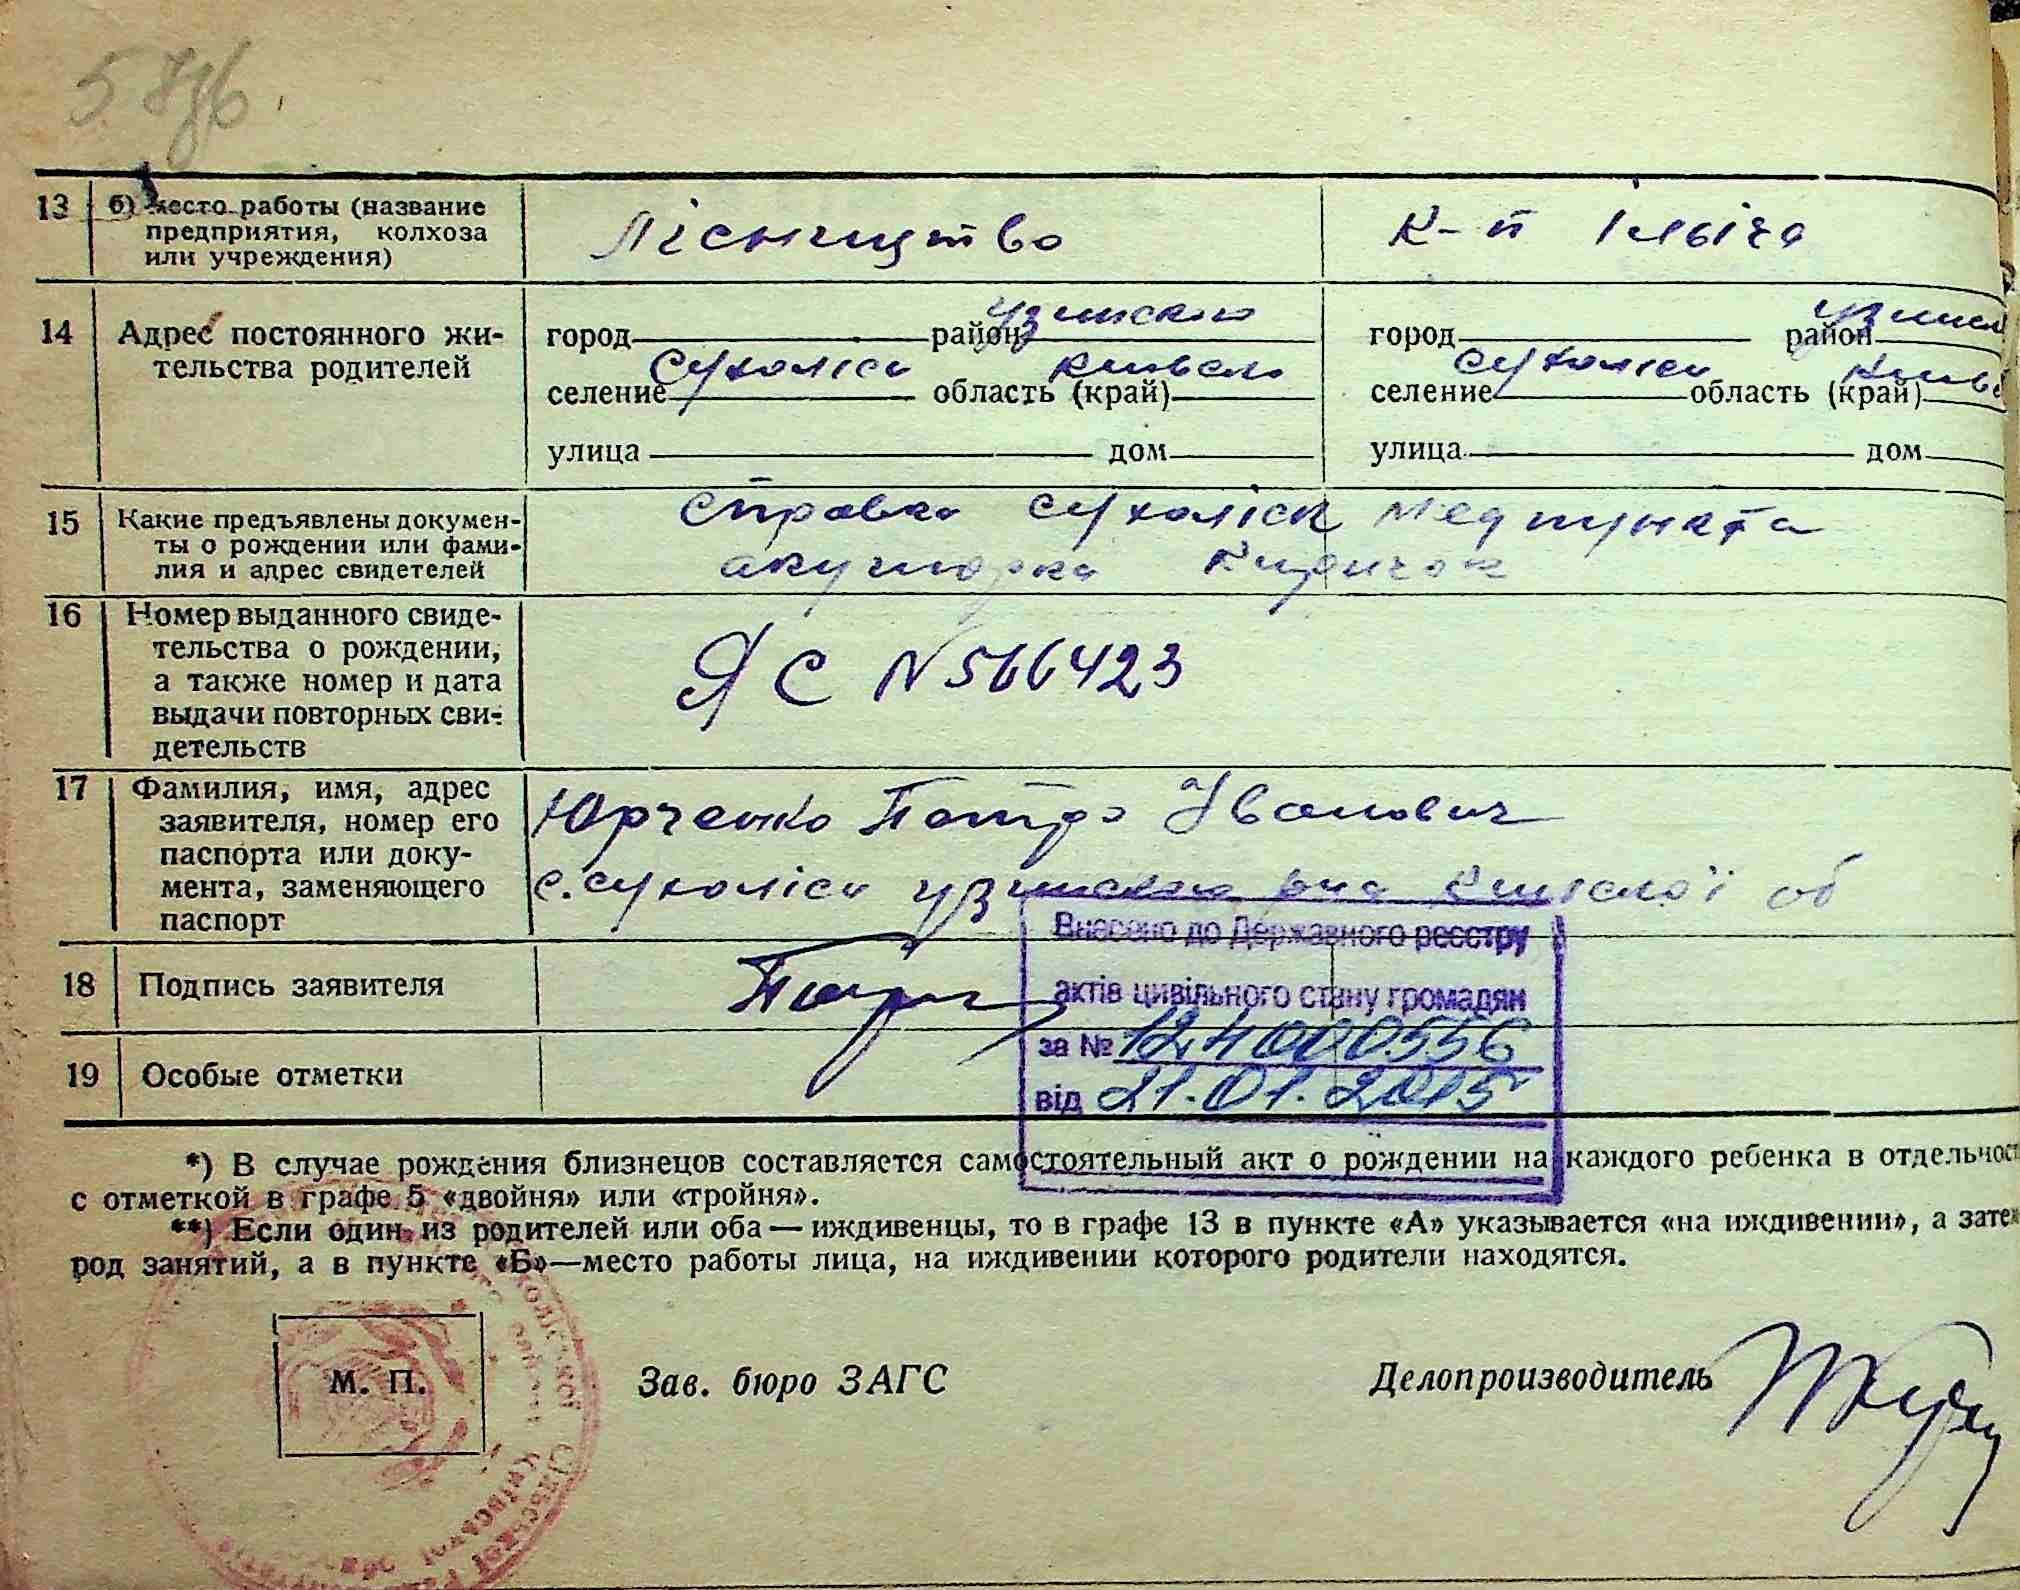 13 б) место работы (название
предприятия, колхоза
или учреждения)
Лісництво
к-п Ілыіча
14 Адрес постоянного жи-
тельства родителей
город район Узинского
селение Сухоліси область (край) Киевско
улица дом
город район Узинск
селение Сухоліси область (край) Киевс
улица дом
15 Какие предъявлены докумен-
ты о рождении или фами-
лия и адрес свидетелей
Справка Сухоліск медпункта
акушорка Киричок
16 Номер выданного свиде-
тельства о рождении,
а также номер и дата
выдачи повторных сви-
детельств
ЯС N 566423
17 Фамилия, имя, адрес
заявителя, номер его
паспорта или доку-
мента, заменяющего
паспорт
Юрченко Петро Іванович
с. Сухоліси Узинского р-на Київської об
18 Подпись заявителя
Внесено до Державного реєстру
актів цивільного стану громадян
за № 124000556
від 21.01.2015
19 Особые отметки
*) В случае рождения близнецов составляется самостоятельный акт о рождении на каждого ребенка в отдельност
с отметкой в графе 5 «двойня» или «тройня».
**) Если один из родителей или оба — иждивенцы, то в графе 13 в пункте «А» указывается «на иждивении», а зате
род занятий, а в пункте «Б»—место работы лица, на иждивении которого родители находятся.
М. П.
Зав. бюро ЗАГС
Делопроизводитель